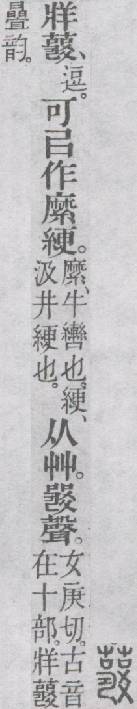 牂、逗。可㠯作縻綆。縻、牛轡也。綆、汲井綆也。从艸。聲。女庚切。古音在十部。牂
疊韵。